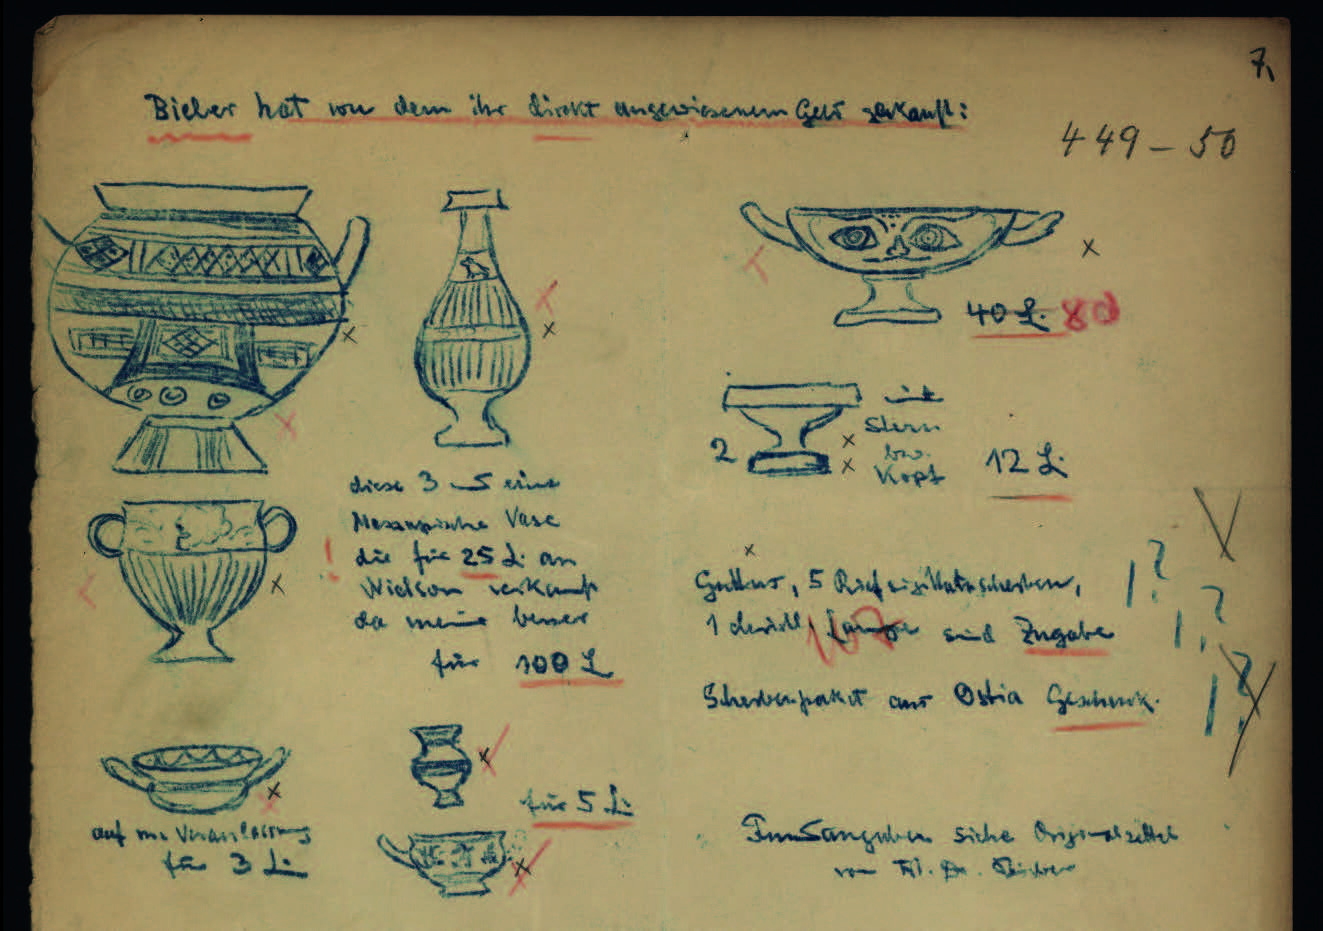 7.
Bieber hat von dem ihr direkt angewiesenem Geld gekauft:
449-50
40 L. 80
2
mit
Stern
bzw.
Kopf
12 L.
diese 3 und eine
Messapische Vase
die für 25 L. an
verkauft
da meine besser
für 100 L
Guttus, 5
1 christl. Lampe sind Zugabe
Scherbenpaket aus Ostia Geschenk.
! ?
! ?
! ?
für 5 L.
auf m. Veranlassung
für 3 L.
Fundangaben siehe Originalzettel
von Frl. Dr. Bieber